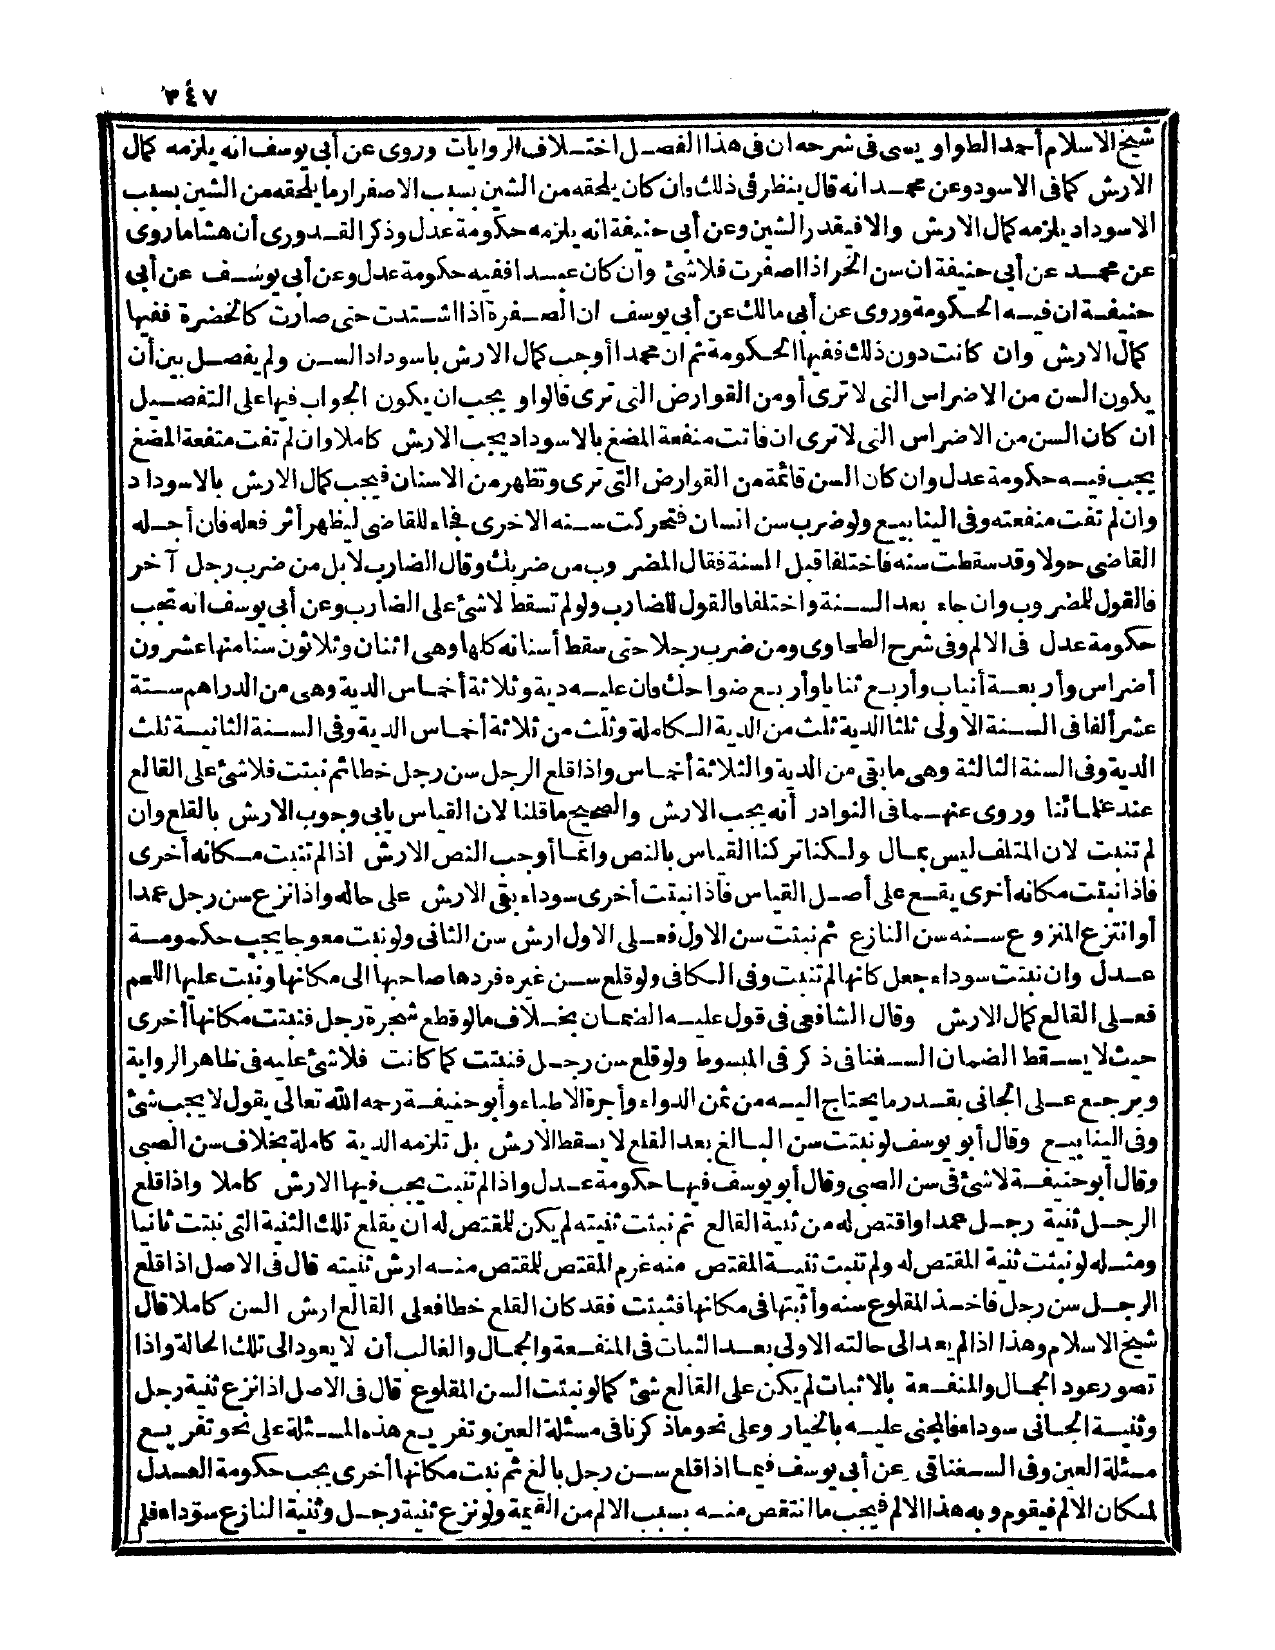 ٣٤٧
شيخ الاسلام أحمد الطواويسى فى شرحه ان فى هذا الفصل اختلاف الروايات وروى عن أبى يوسف انه يلزمه كمال
الارش كما فى الاسود وعن محمد انه قال ينظر فى ذلك وان كان يلحقه من الشين بسبب الاصفرار ما يلحقه من الشين بسبب
الاسوداد يلزمه كمال الارش والا فبقدر الشين وعن أبى حنيفة انه يلزمه حكومة عدل وذكر القدورى أن هشاما روى
عن محمد عن أبى حنيفة ان سن الحر اذا اصفرت فلا شئ وان كان عبدا ففيه حكومة عدل وعن أبى يوسف عن أبى
حنيفة ان فيه الحكومة وروى عن أبى مالك عن أبى يوسف ان الصفرة اذا اشتدت حتى صارت كالخضرة ففيها
كمال الارش وان كانت دون ذلك ففيها الحكومة ثم ان محمدا أوجب كمال الارش باسوداد السن ولم يفصل بين أن
يكون السن من الاضراس التى لا ترى أو من القوارض التى ترى قالوا ويجب ان يكون الجواب فيها على التفصيل
ان كان السن من الاضراس التى لا ترى ان فاتت منفعة المضغ بالاسوداد يجب الارش كاملا وان لم تفت منفعة المضغ
يجب فيه حكومة عدل وان كان السن قائمة من القوارض التى ترى وتظهر من الاسنان فيجب كمال الارش بالاسوداد
وان لم تفت منفعته وفى الينابيع ولو ضرب سن انسان فتحركت سنه الاخرى فجاء للقاضى ليظهر أثر فعله فان أجله
القاضى حولا وقد سقطت سنه فاختلفا قبل السنة فقال المضروب من ضربك وقال الضارب لا بل من ضرب رجل آخر
فالقول للمضروب وان جاء بعد السنة واختلفا فالقول للضارب ولو لم تسقط لا شئ على الضارب وعن أبى يوسف انه تجب
حكومة عدل فى الالم وفى شرح الطحاوى ومن ضرب رجلا حتى سقط أسنانه كلها وهى اثنان وثلاثون سنا منها عشرون
أضراس وأربعة أنياب وأربع ثنايا وأربع ضواحك فان عليه دية وثلاثة أخماس الدية وهى من الدراهم ستة
عشر ألفا فى السنة الاولى ثلثا الدية ثلث من الدية الكاملة وثلث من ثلاثة أخماس الدية وفى السنة الثانية ثلث
الدية وفى السنة الثالثة وهى ما بقى من الدية والثلاثة أخماس واذا قلع الرجل سن رجل خطأ ثم نبتت فلا شئ على القالع
عند علمائنا وروى عنهما فى النوادر أنه يجب الارش والصحيح ما قلنا لان القياس يابى وجوب الارش بالقلع وان
لم تنبت لان المتلف ليس بمال ولكنا تركنا القياس بالنص وانما أوجب النص الارش اذا لم تنبت مكانه أخرى
فاذا نبتت مكانه أخرى يقع على أصل القياس فاذا نبتت أخرى سوداء بقى الارش على حاله واذا نزع سن رجل عمدا
أو انتزع المنزوع سنه سن النازع ثم نبتت سن الاول فعلى الاول ارش سن الثانى ولو نبتت معوجا يجب حكومة
عدل وان نبتت سوداء جعل كانها لم تنبت وفى الكافى ولو قلع سن غيره فردها صاحبها الى مكانها ونبت عليها اللحم
فعلى القالع كمال الارش وقال الشافعى فى قول عليه الضمان بخلاف مالو قطع شجرة رجل فنبتت مكانها أخرى
حيث لا يسقط الضمان السغناقى ذكر فى المبسوط ولو قلع سن رجل فنبتت كما كانت فلا شئ عليه فى ظاهر الرواية
ويرجع على الجانى بقدر ما يحتاج اليه من ثمن الدواء وأجرة الاطباء وأبو حنيفة رحمه الله تعالى يقول لا يجب شئ
وفى الينابيع وقال أبو يوسف لو نبتت سن البالغ بعد القلع لا يسقط الارش بل تلزمه الدية كاملة بخلاف سن الصبى
وقال أبو حنيفة لا شئ فى سن الصبى وقال أبو يوسف فيها حكومة عدل واذا لم تنبت يجب فيها الارش كاملا واذا قلع
الرجل ثنية رجل عمدا واقتص له من ثنية القالع ثم نبتت ثنيته لم يكن للمقتص له ان يقلع تلك الثنية التى نبتت ثانيا
ومثله لو نبتت ثنية المقتص له ولم تنبت ثنية المقتص منه غرم المقتص للمقتص منه ارش ثنيته قال فى الاصل اذا قلع
الرجل سن رجل فاخذ المقلوع سنه وأثبتها فى مكانها فثبتت فقد كان القلع خطأ فعلى القالع ارش السن كاملا قال
شيخ الاسلام وهذا اذا لم يعد الى حالته الاولى بعد الثبات فى المنفعة والجمال والغالب أن لا يعود الى تلك الحالة واذا
تصور عود الجمال والمنفعة بالاثبات لم يكن على القالع شئ كما لو نبتت السن المقلوع قال فى الاصل اذا نزع ثنية رجل
وثنية الجانى سوداء فالمجنى عليه بالخيار وعلى نحو ما ذكرنا فى مسئلة العين وتفريع هذه المسئلة على نحو تفريع
مسئلة العين وفى السغناقى عن أبى يوسف فيما اذا قلع سن رجل بالغ ثم نبتت مكانها أخرى يجب حكومة العدل
لمكان الالم فيقوم وبه هذا الالم فيجب ما انتقص منه بسبب الالم من القيمة ولو نزع ثنية رجل وثنية النازع سوداء فلم